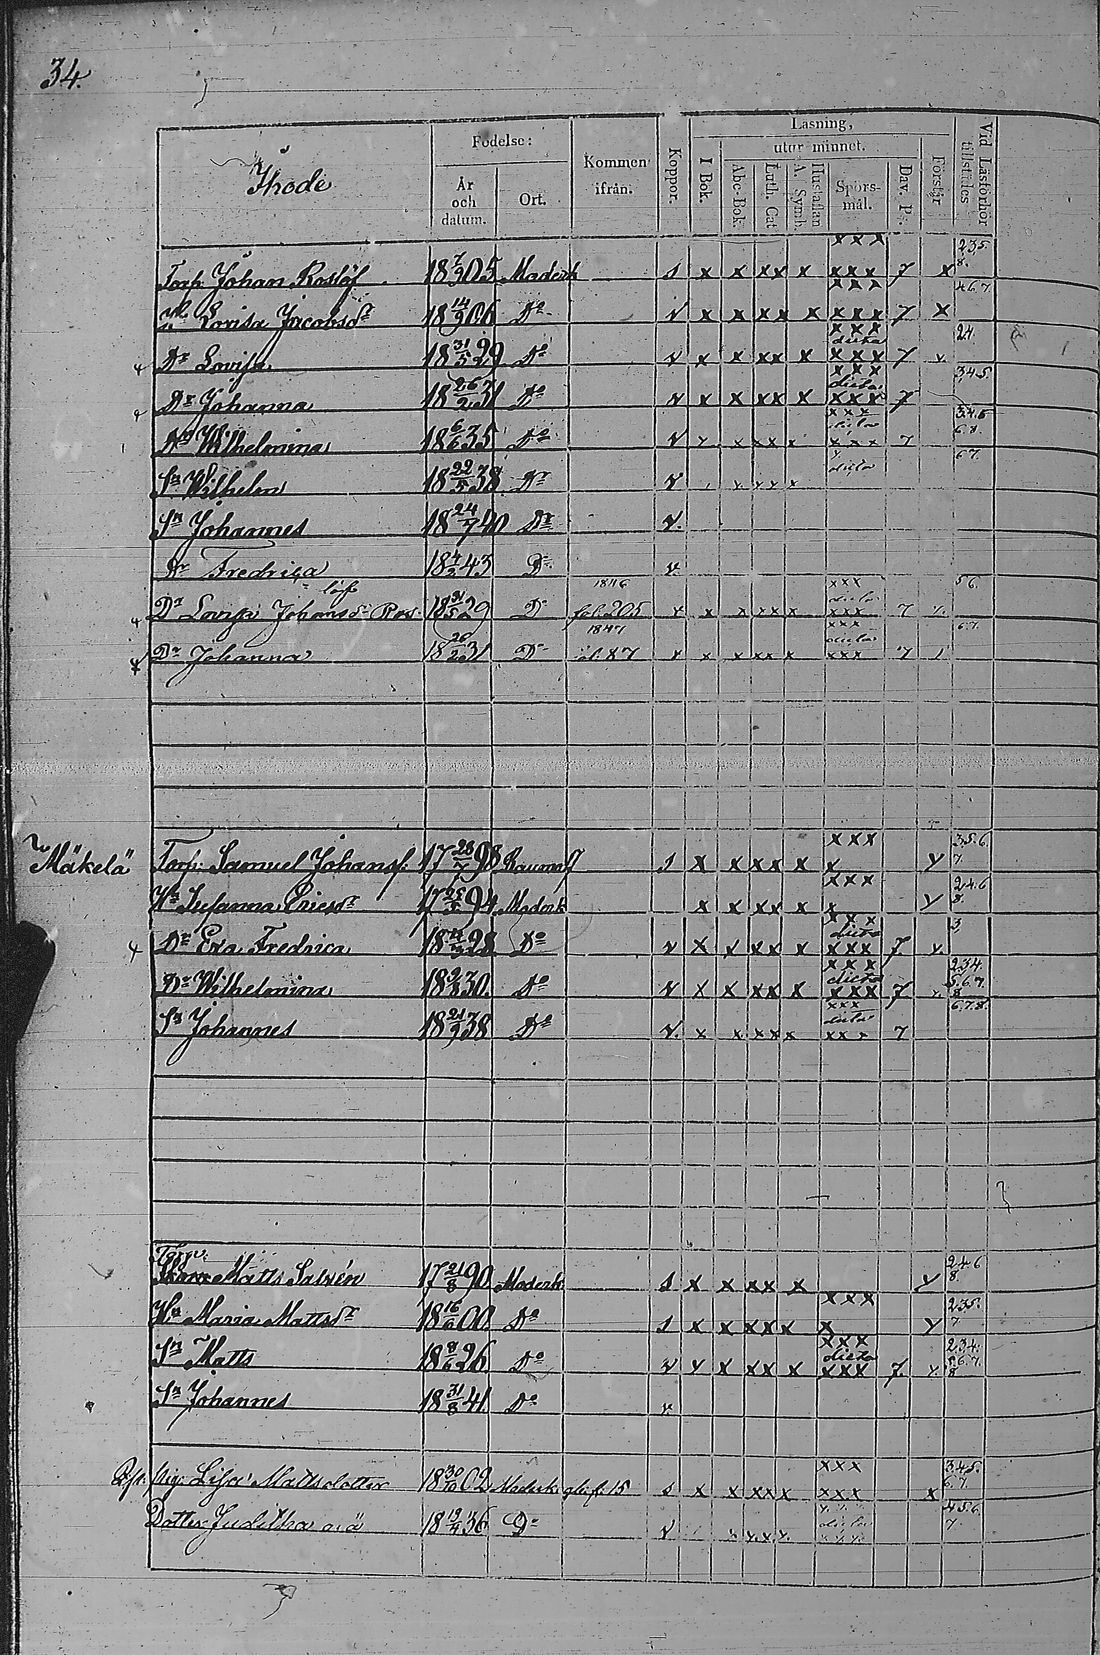 34.
Ihode
Födelse:
År och datum.
Ort.
Kommen ifrån.
Koppor.
Läsning,
utur minnet.
I Bok.
Abc-Bok
Luth. Cat
A. Symb.
Hustaflan
Spörs-mål.
Dav. Ps.
Förstår
Vid Läsförhör tillstädes
Torp: Johan Roslöf 18 7/9 05 Moderk s x x xx x xxx xxx 7 x 235 8.
Hu Lovisa Jacobsdr 18 14/9 06 Do v x x xx x xxx xxx 7 x 467
Dr Lovisa 18 31/5 29 Do v x x xx x xxx dicta xxx 7 24
Dr Johanna 18 26/2 31 Do v x x xx x xxx dicta xxx 7 345
Dr Wilhelmina 18 6/6 35 Do v xxx dicta xxx 7 345 6.8.
Sn Wilhelm 18 22/5 38 Do v dicta 67.
Sn Johannes 18 24/7 40 Do v.
Dr Fredrica 18 4/3 43 Do v.
Dr Lovisa Johansdr Ros-löf 18 31/5 29 Do 1846 fol. 205 v x x xxx xxx dicta xxx 7 56.
Dr Johanna 18 26/2 31 Do 1847 87 v x x xx x xxx dicta xxx 7 67.
"Mäkelä"
Torp: Samuel Johanss. 17 28/7 98 Raumo s x x xx x x xxx x 35.6 7.
Hu Susanna Ericsdr 17 94 Moderk x x xx x xxx x 246 8.
Dr Eva Fredrica 18 28 Do v x x xx x xxx dicta xxx 7. 3
Dr Wilhelmina 18 30. Do v x x xx x xxx dicta xxx 7 234. 5.6.7. 8
Sn Johannes 18 21/9 38 Do v. x x xxx x xxx dicta xxx 7 6.7.8.
Torp:
Matts Salvén 17 21/8 90. Moderk s x x xx x 246 8
Hu Maria Mattsdr 18 16/ 00. Do s x x xxx x xxx x 235. 7
Sn Matts 18 8/6 26 Do v x x xx x xxx dicta xxx 7. 234. 5.6.7. 8
Sn Johannes 18 31/8 41. Do v.
Pig: Lisa Mattsdotter 18 30/10 02 Moderk 15 s x x xxx x xxx xxx x 345. 6.7.
Dotter Juditha 18 19/7 36 Do v dicta 456. 7.